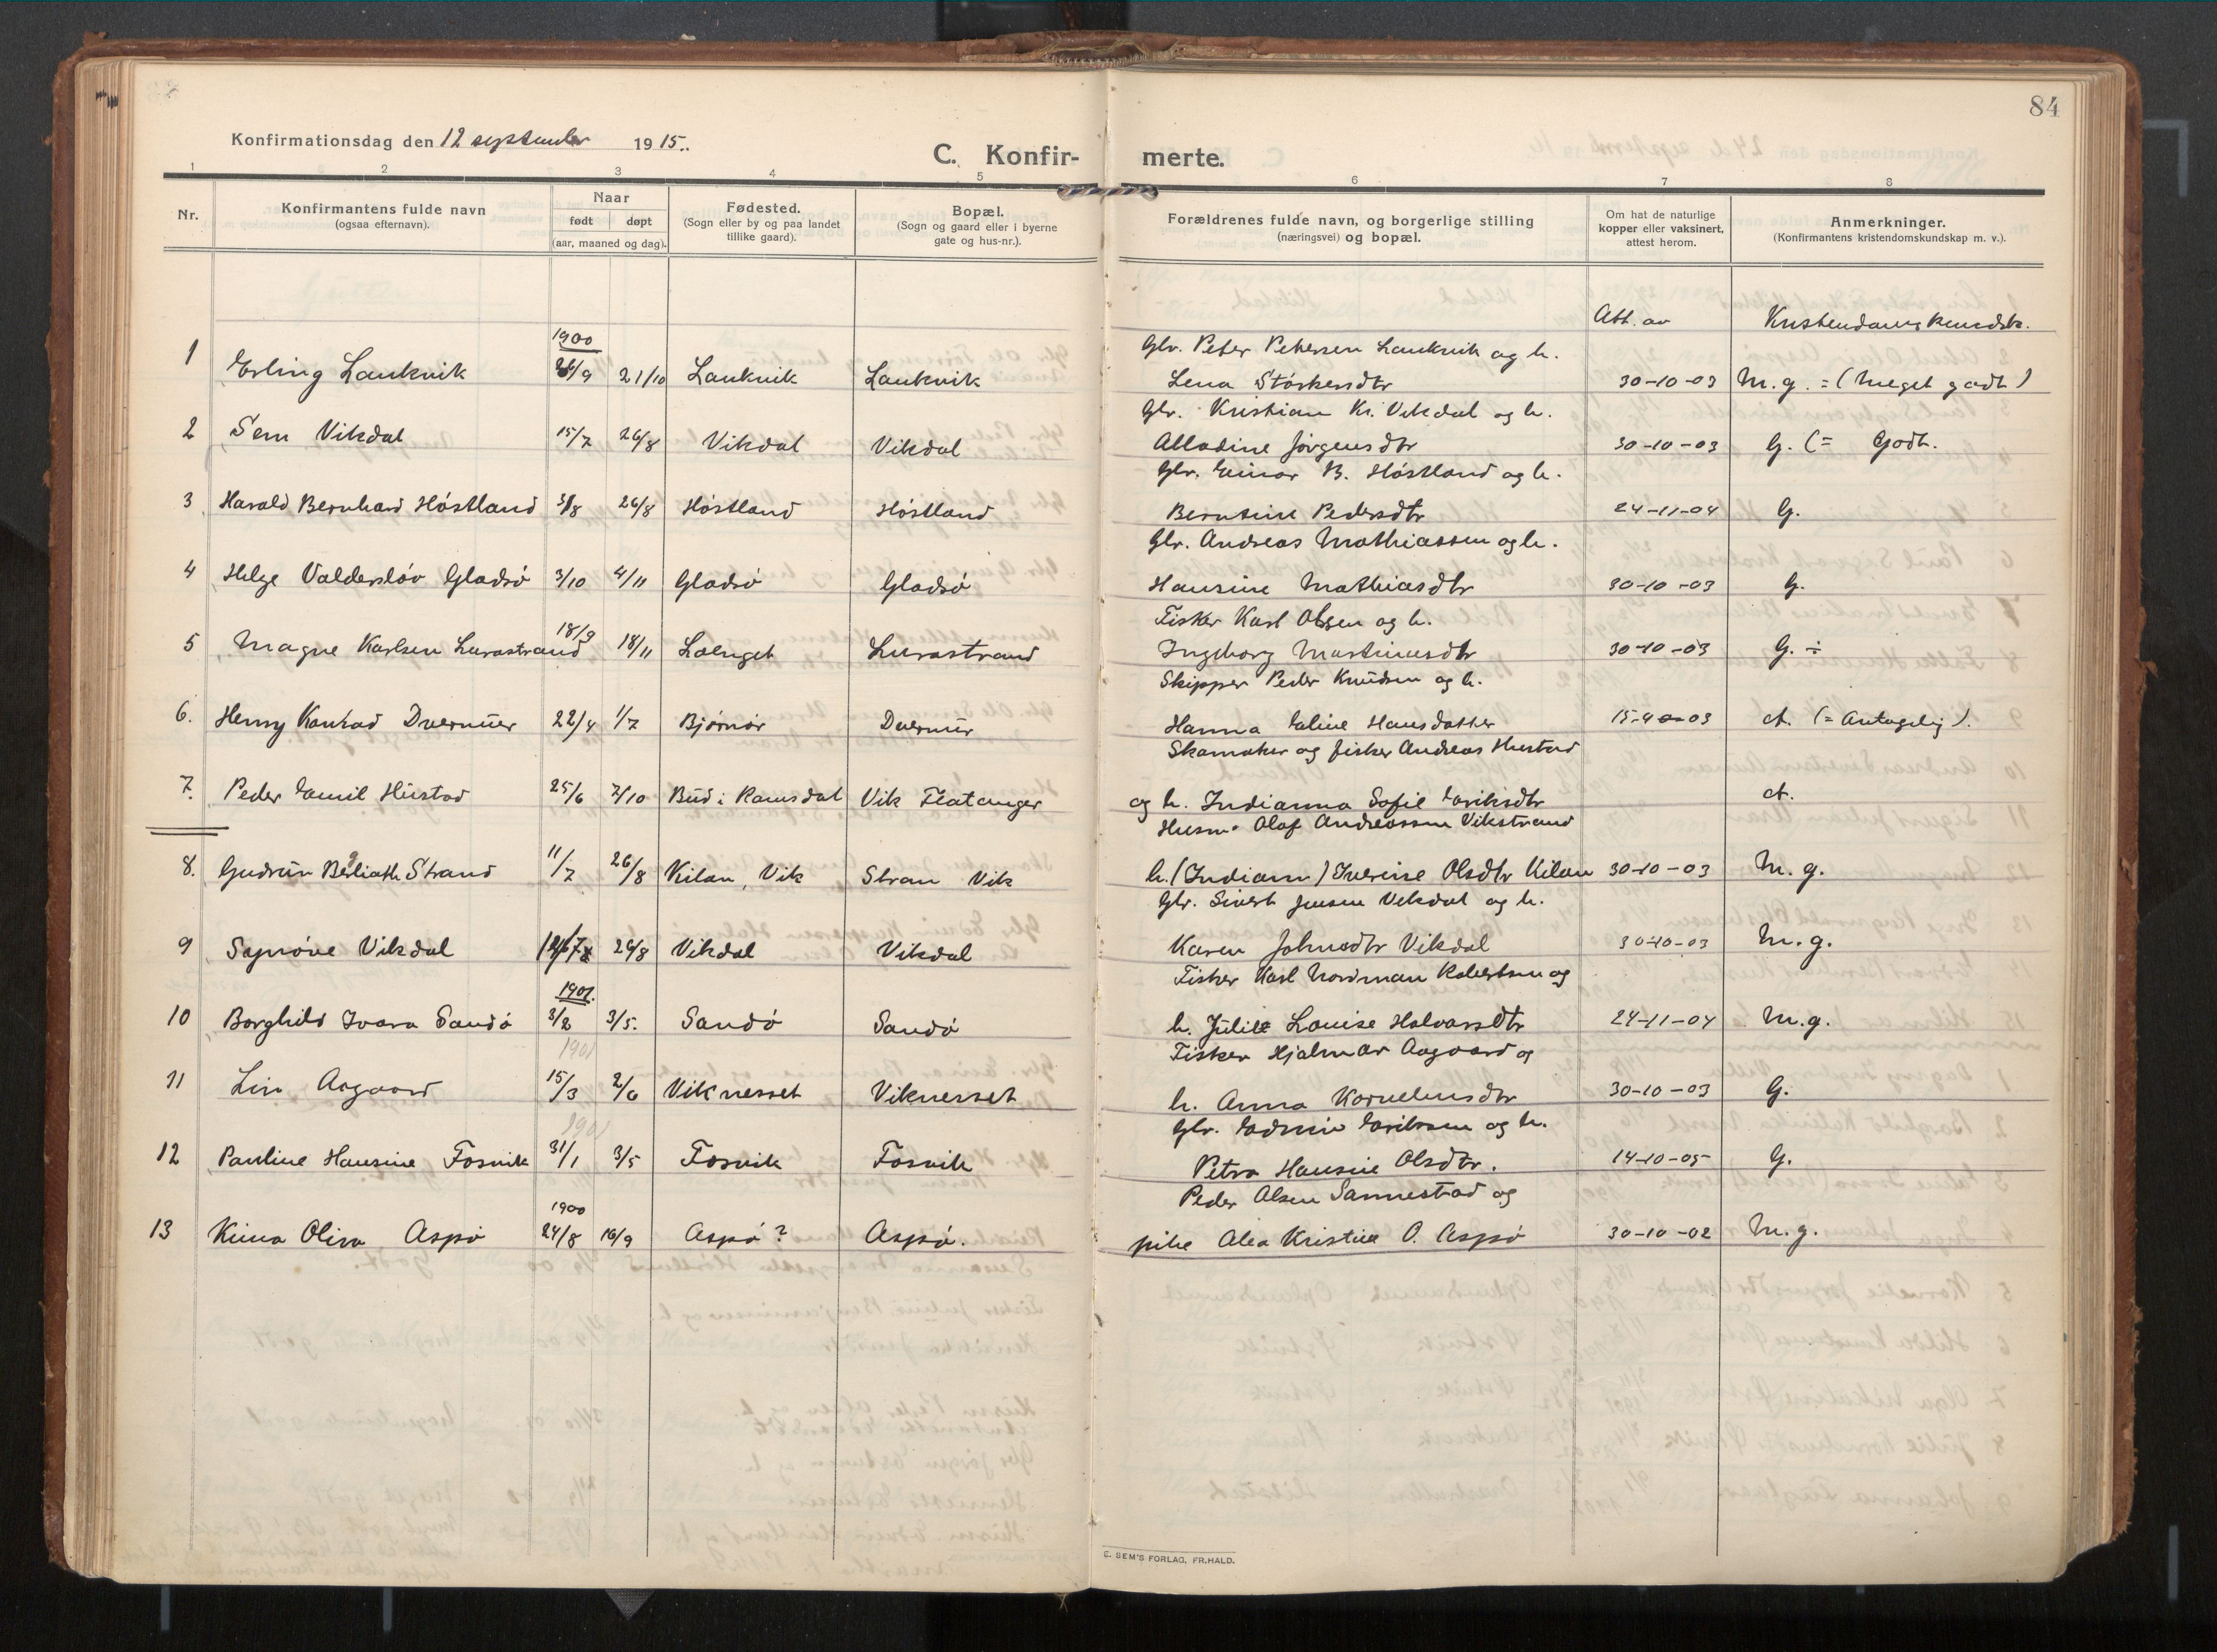 84
Konfirmationsdag den 12 september 1915.
C. Konfir- merte.
1 2 3 4 5 6 7 8
Nr. Konfirmantens fulde navn (ogsaa efternavn). Naar født døpt (aar, maaned og dag). Fødested. (Sogn eller by og paa landet tillike gaard). Bopæl. (Sogn og gaard eller i byerne gate og hus-nr.). Forældrenes fulde navn, og borgerlige stilling (næringsvei) og bopæl. Om hat de naturlige kopper eller vaksinert, attest herom. Anmerkninger. (Konfirmantens kristendomskundskap m. v.).
Att. av Kristendomskundsk.
1900 Gbr. Peter Petersen Laukvik og h.
1 Erling Laukvik 26/9 21/10 Laukvik Laukvik Lena Størkersdtr 30-10-03 M.g. = (Meget godt)
Gbr. Kristian Kr. Vikdal og h.
2 Sem Vikdal 15/7 26/8 Vikdal Vikdal Alladine Jørgensdtr 30-10-03 G. (= Godt.
Gbr. Einar B. Høstland og h.
3 Harald Bernhard Høstland 3/8 26/8 Høstland Høstland Berntine Pedersdtr 24-11-04 G.
Gbr. Andreas Mathiassen og h.
4 Helge Valdersløv Gladsø 3/10 4/11 Gladsø Gladsø Hansine Mathiasdtr 30-10-03 G.
Fisker Karl Olsen og h.
5 Magne Karlsen Lurastrand 18/9 18/11 Lurastrand Ingeborg Martinusdtr 30-10-03 G. ÷
Skipper Peder Knudsen og h.
6. Henry Konrad Duernür 22/4 1/7 Bjørnør Duernür Hanna Hansdatter 15-4-03 A. (= Antagelig).
Skomaker og fisker Andreas Hustad
7. Peder Emil Hüstad 25/6 7/10 Büd i Romsdal Vik Flatanger og h. Indianna Sofie Eriksdtr A.
Husm. Olaf Andreassen Vikstrand
8. Gudrün Strand 11/7 26/8 Kilan, Vik Stran Vik h. (Indiann) Iverine Olsdtr Kilan 30-10-03 M.g.
Gbr. Sivert Jensen Vikdal og h.
9 Synøve Vikdal 26/8 Vikdal Vikdal Karen Johnsdtr Vikdal 30-10-03 M.g.
1901. Fisker Karl Nordman Robertsen og
10 Borghild Ivara Sandø 3/2 3/5. Sandø Sandø h. Jülie Louise Halvarsdtr 24-11-04 M.g.
1901 Fisker Hjalmar Aagaard og
11 Liv Aagaard 15/3 2/6 Viknesset Viknesset h. Anna Korneliusdtr 30-10-03 G.
1901 Gbr. Edmin Eriksen og h.
12 Pauline Hansine Fosvik 31/1 3/5 Fosvik Fosvik Petra Hansine Olsdtr. 14-10-05 G.
1900 Peder Olsen Sannestad og
13 Kima Oliva Aspø 24/8 16/9 Aspø? Aspø. pike Alea Kristine O. Aspø 30-10-02 M.g.
E. SEM'S FORLAG, FR.HALD.